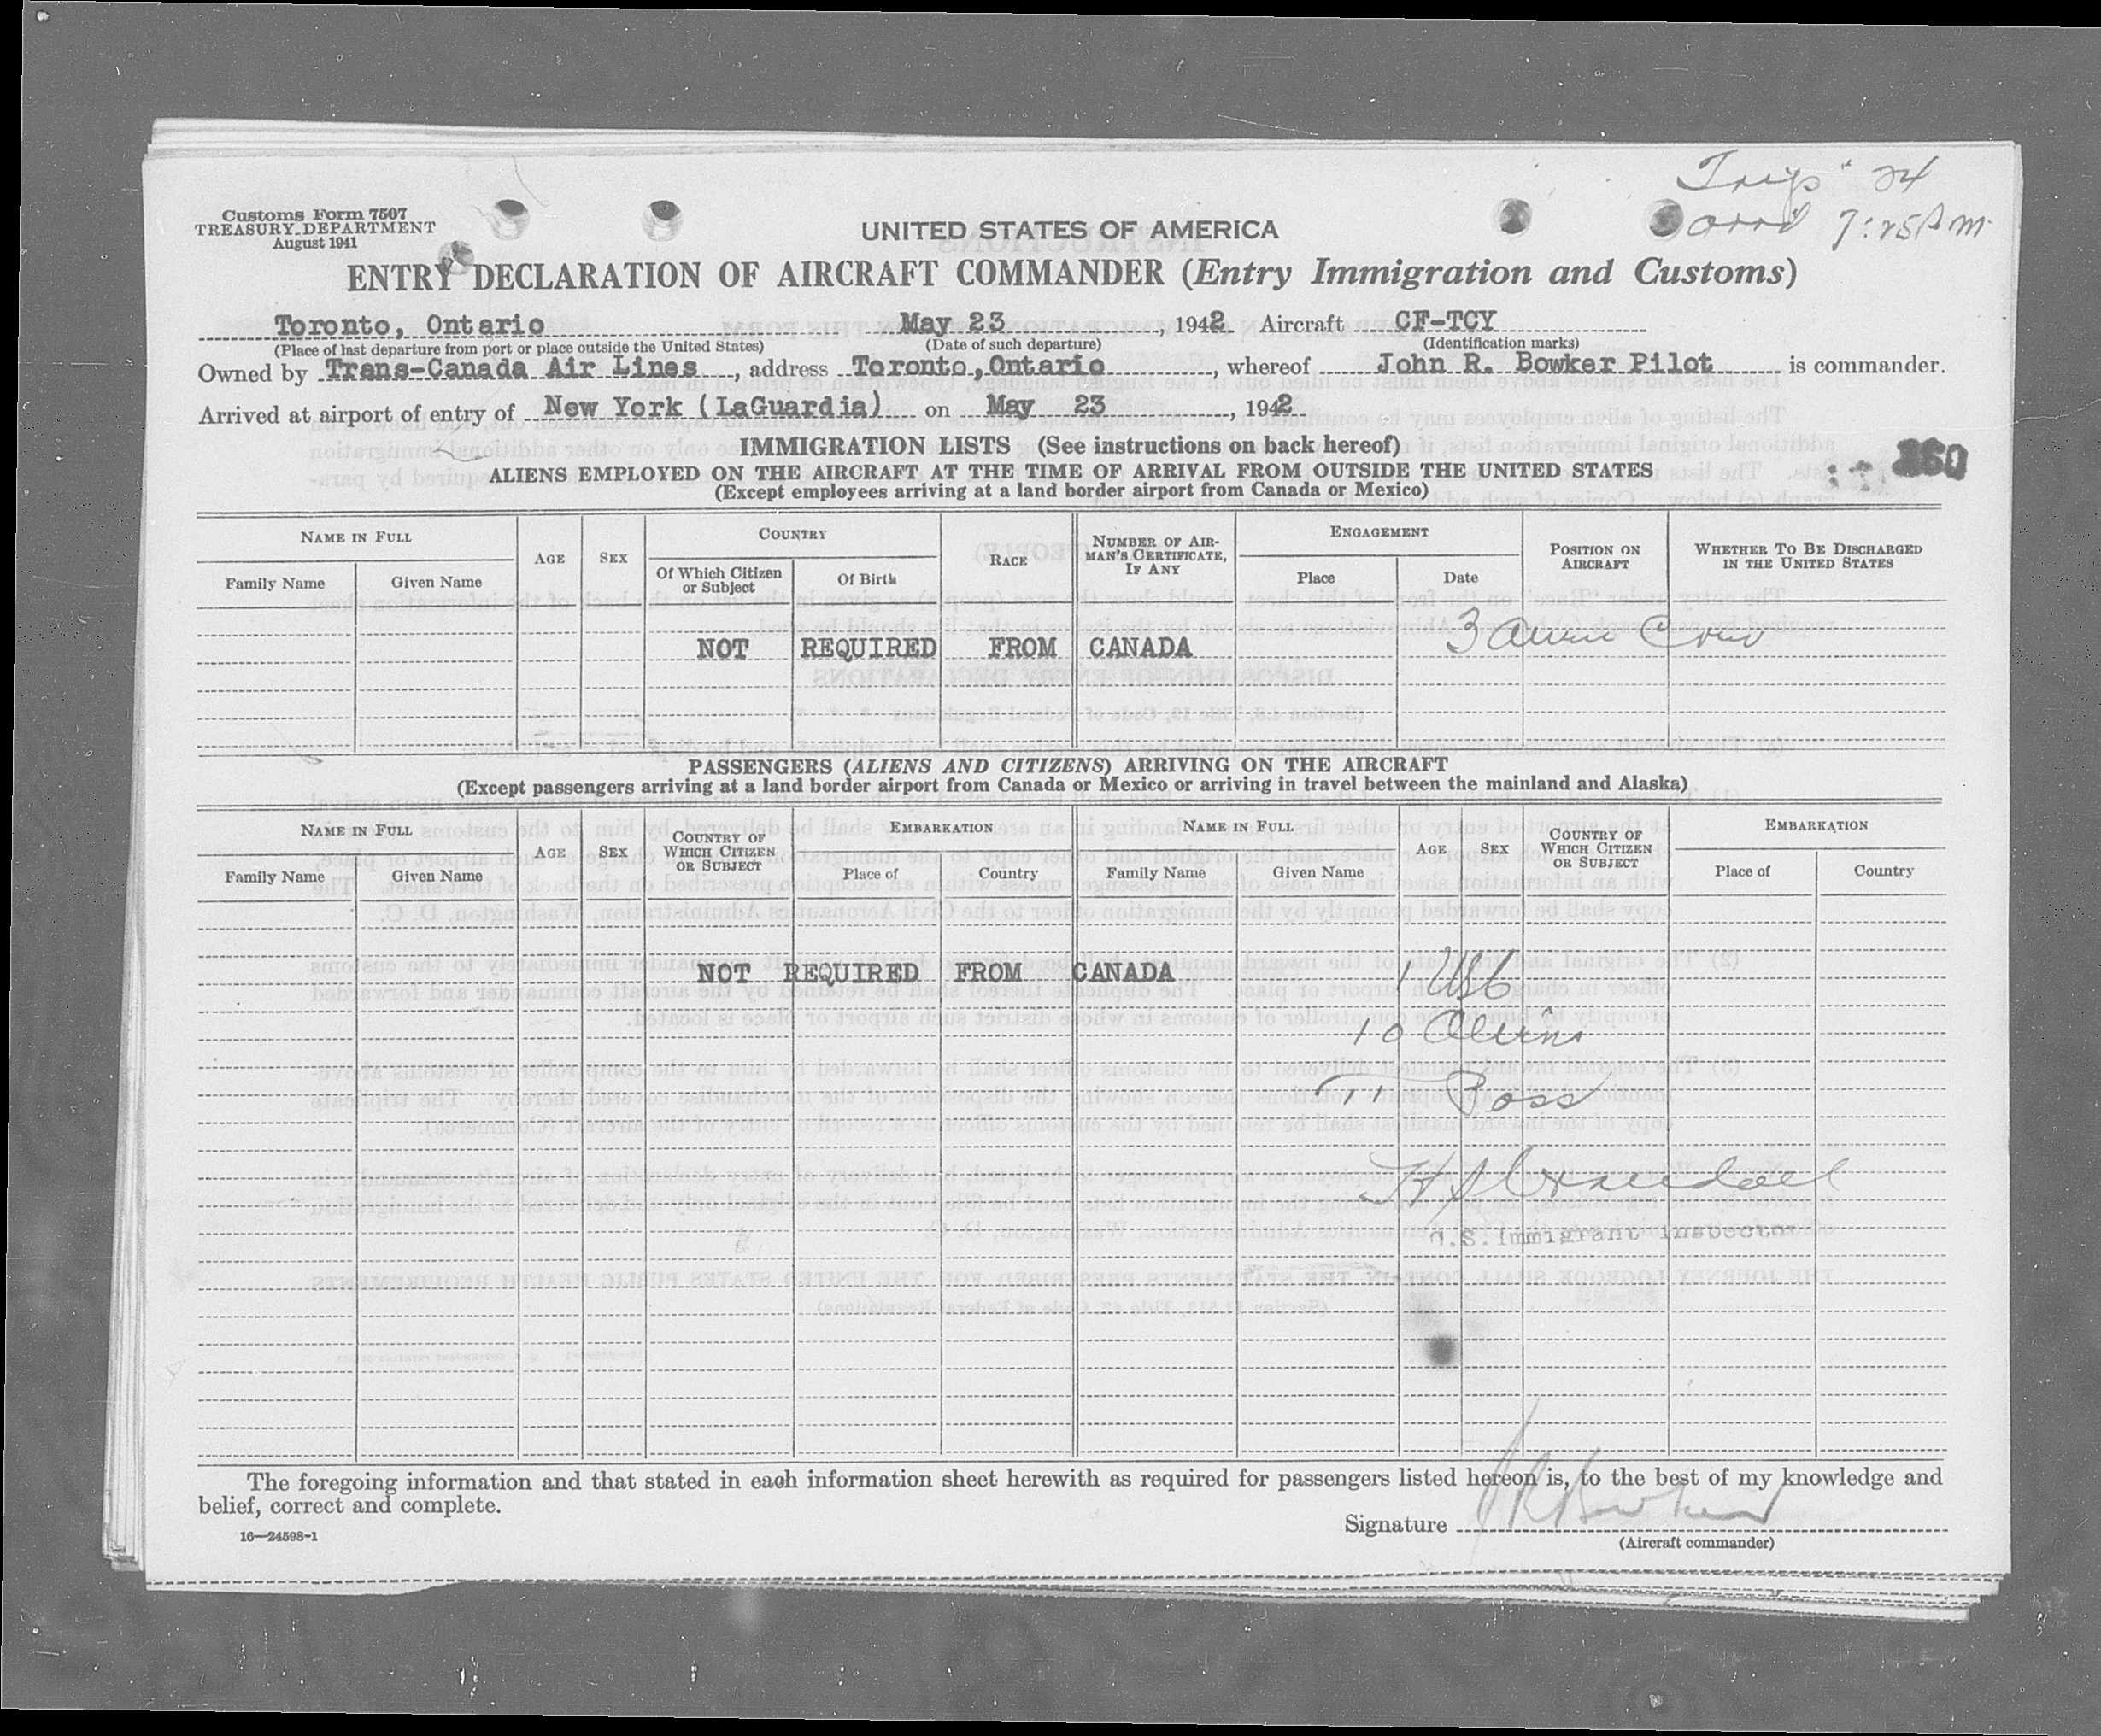 Trip 24
Customs Form 7507
TREASURY DEPARTMENT
August 1941
arrd 7:25 A m.
UNITED STATES OF AMERICA
ENTRY DECLARATION OF AIRCRAFT COMMANDER (Entry Immigration and Customs)
Toronto, Ontario May 23, 1942 Aircraft CF-TCY
(Place of last departure from port or place outside the United States) (Date of such departure) (Identification marks)
Owned by Trans-Canada Air Lines, address Toronto, Ontario, whereof John R. Bowker Pilot is commander.
Arrived at airport of entry of New York (LaGuardia) on May 23, 1942
IMMIGRATION LISTS (See instructions on back hereof)
ALIENS EMPLOYED ON THE AIRCRAFT AT THE TIME OF ARRIVAL FROM OUTSIDE THE UNITED STATES
(Except employees arriving at a land border airport from Canada or Mexico)
NAME IN FULL AGE SEX COUNTRY RACE NUMBER OF AIRMAN'S CERTIFICATE, IF ANY ENGAGEMENT POSITION ON AIRCRAFT WHETHER TO BE DISCHARGED IN THE UNITED STATES
Family Name Given Name Of Which Citizen or Subject Of Birth Place Date
3 alien Crew
NOT REQUIRED FROM CANADA
PASSENGERS (ALIENS AND CITIZENS) ARRIVING ON THE AIRCRAFT
(Except passengers arriving at a land border airport from Canada or Mexico or arriving in travel between the mainland and Alaska)
NAME IN FULL AGE SEX COUNTRY OF WHICH CITIZEN OR SUBJECT EMBARKATION NAME IN FULL AGE SEX COUNTRY OF WHICH CITIZEN OR SUBJECT EMBARKATION
Family Name Given Name Place of Country Family Name Given Name Place of Country
NOT REQUIRED FROM CANADA 1 USC
10 Aliens
11 Pass
U.S. Immigrant Inspector
The foregoing information and that stated in each information sheet herewith as required for passengers listed hereon is, to the best of my knowledge and
belief, correct and complete.
Signature J R Bowker
16—24598-1
(Aircraft commander)